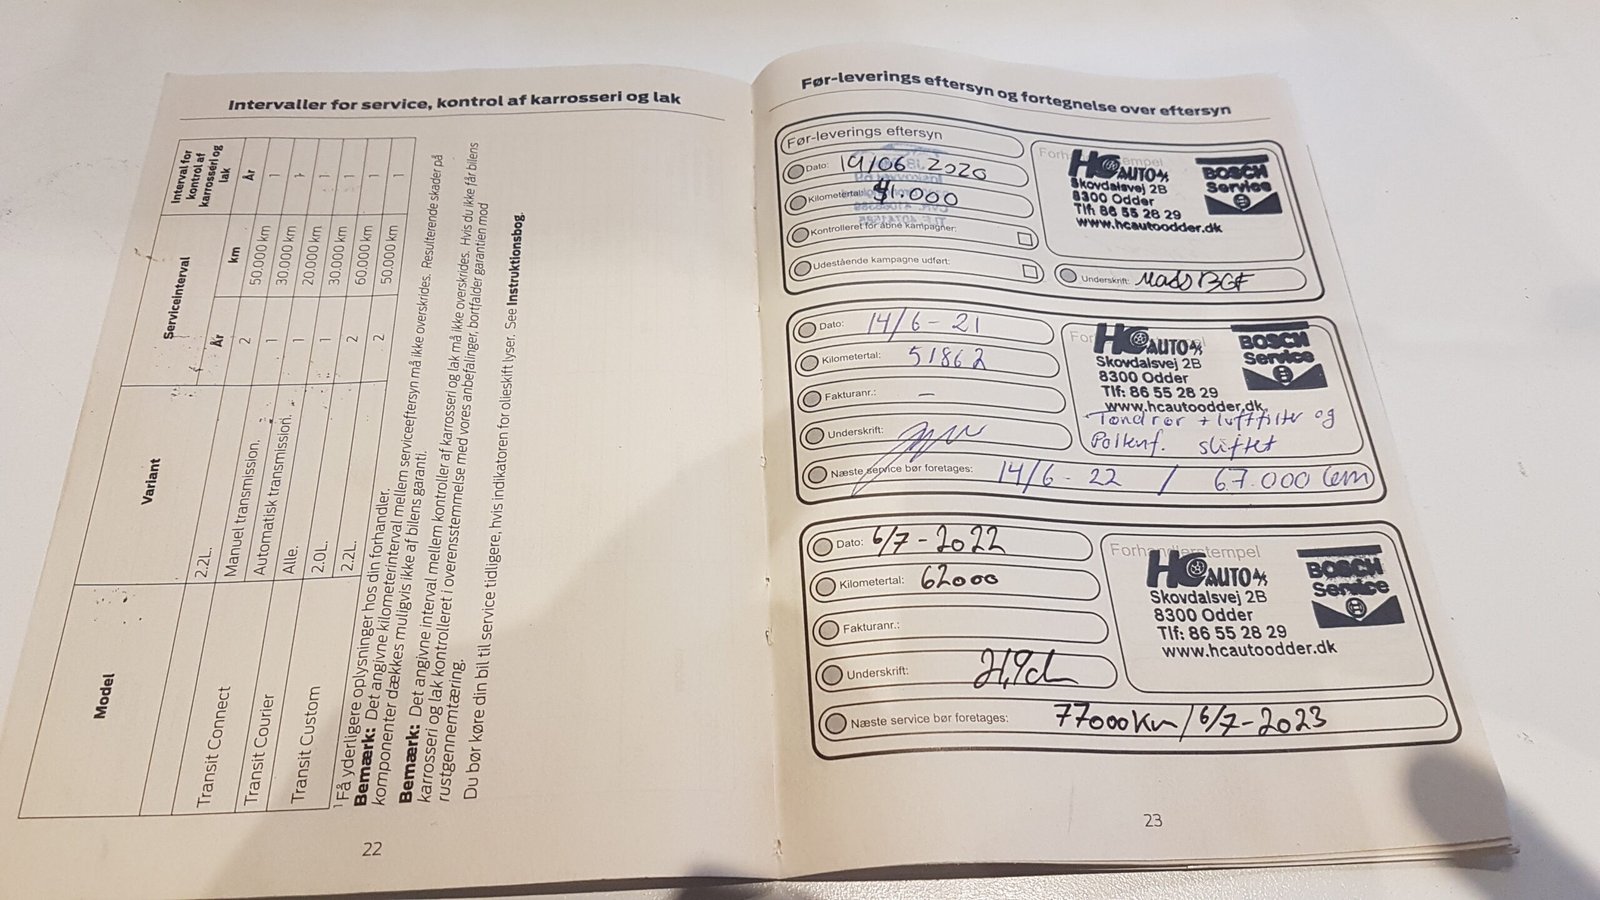 Intervaller for service, kontrol af karrosseri og lak
Model
Variant
Serviceinterval
Interval for kontrol af karrosseri og lak
År
km
År
Transit Connect
2.2L.
2
50.000 km
1
Manuel transmission.
1
30.000 km
1
Transit Courier
Automatisk transmission.
1
20.000 km
1
Alle.
1
30.000 km
1
Transit Custom
2.0L.
2
60.000 km
1
2.2L.
2
50.000 km
1
1 Få yderligere oplysninger hos din forhandler.
Bemærk: Det angivne kilometerinterval mellem serviceeftersyn må ikke overskrides. Resulterende skader på
komponenter dækkes muligvis ikke af bilens garanti.
Bemærk: Det angivne interval mellem kontroller af karrosseri og lak må ikke overskrides. Hvis du ikke får bilens
karrosseri og lak kontrolleret i overensstemmelse med vores anbefalinger, bortfalder garantien mod
rustgennemtæring.
Du bør køre din bil til service tidligere, hvis indikatoren for olieskift lyser. See Instruktionsbog.
22
Før-leverings eftersyn og fortegnelse over eftersyn
Før-leverings eftersyn
Dato: 14/06 2020
Kilometertal: 41.000
Kontrolleret for åbne kampagner:
Udestående kampagne udført:
HC AUTO A/S
Skovdalsvej 2B
8300 Odder
Tlf: 86 55 28 29
www.hcautoodder.dk
BOSCH
Service
Underskrift:
Dato: 14/6 - 21
Kilometertal: 51862
Fakturanr.: -
Underskrift:
HC AUTO A/S
Skovdalsvej 2B
8300 Odder
Tlf: 86 55 28 29
www.hcautoodder.dk
BOSCH
Service
Tændrør + luftfilter og
Pollenf. skiftet
Næste service bør foretages: 14/6 - 22 / 67.000 km
Dato: 6/7-2022
Kilometertal: 62000
Fakturanr.:
Underskrift:
Forhandlerstempel
HC AUTO A/S
Skovdalsvej 2B
8300 Odder
Tlf: 86 55 28 29
www.hcautoodder.dk
BOSCH
Service
Næste service bør foretages: 77000 km / 6/7-2023
23